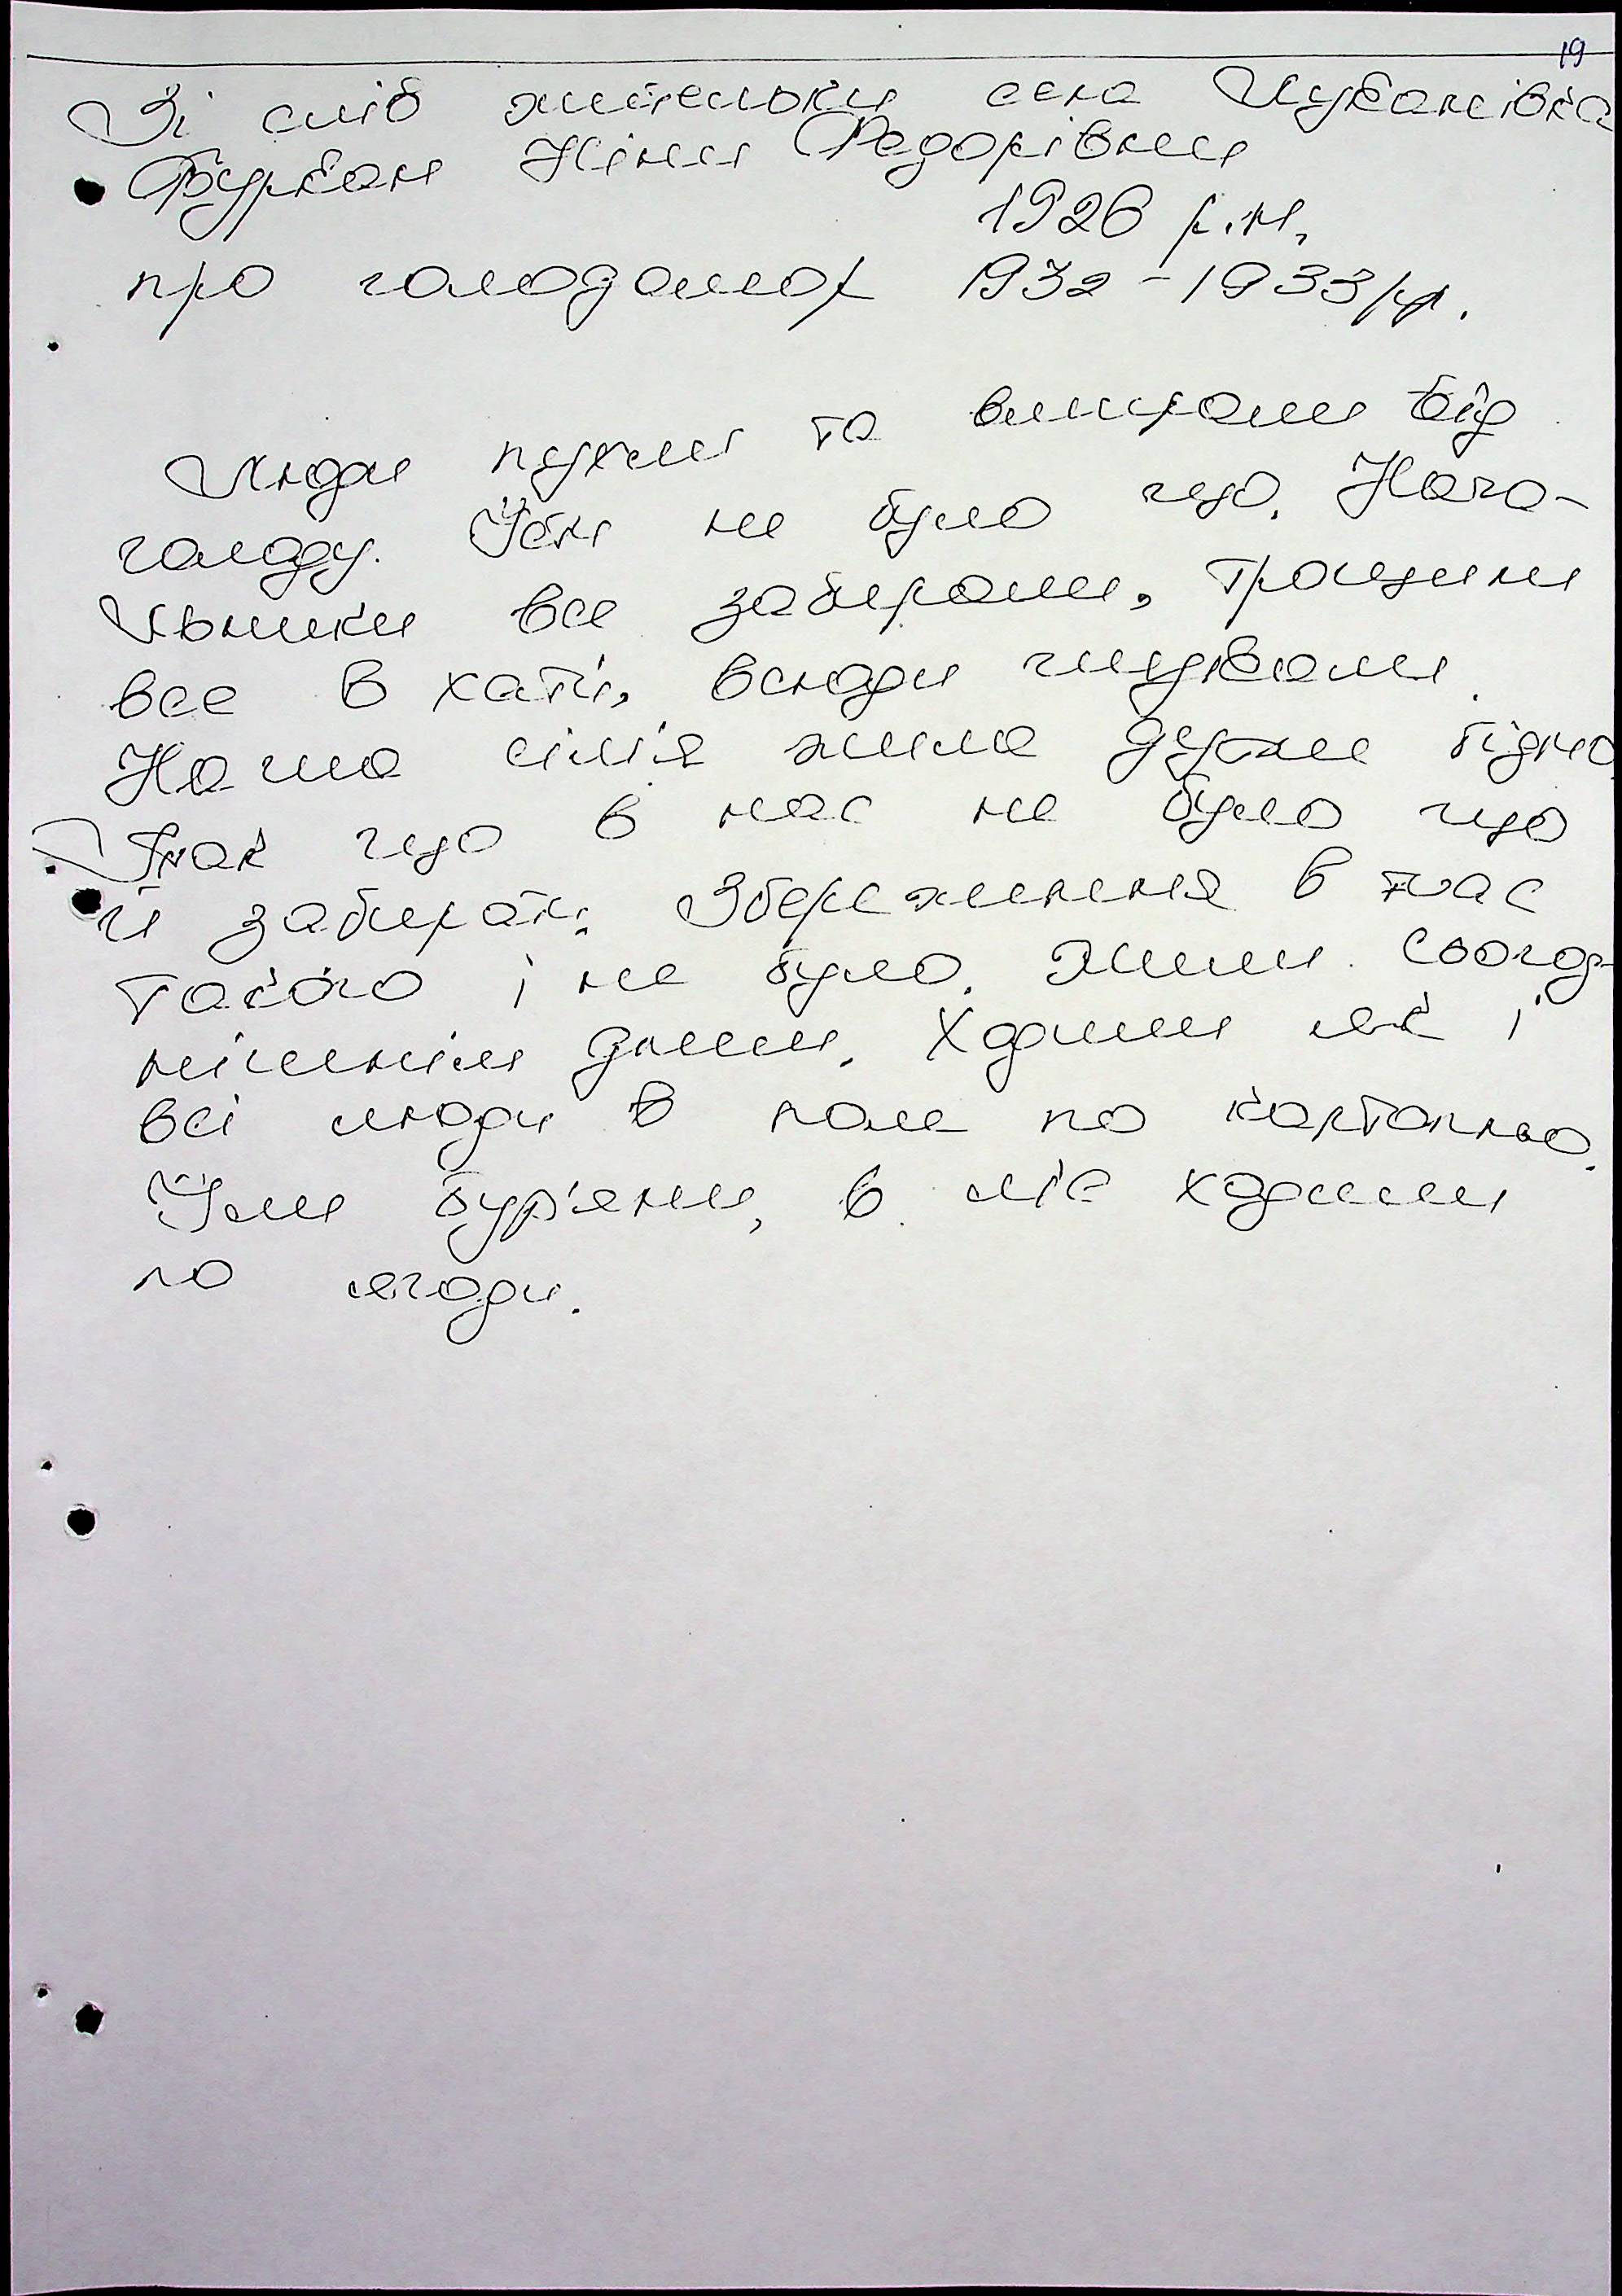 19
Зі слів жительки села Цибанівка
Бурбан Ніни Федорівни
1926 р.н.
про голодомор 1932-1933 рр.
Люди пухли та вмирали від
голоду. Їсти не було що. Нача-
льники все забирали, трощили
все в хаті, всюди шукали.
Наша сім'я жила дуже бідно
Так що в нас не було що
й забирати. Збереження в нас
такого і не було. Жили сьогод-
нішнім днем. Хдоили як і
всі люди в поле по картоплю.
Їли бур'яни, в ліс хдоили
по ягоди.